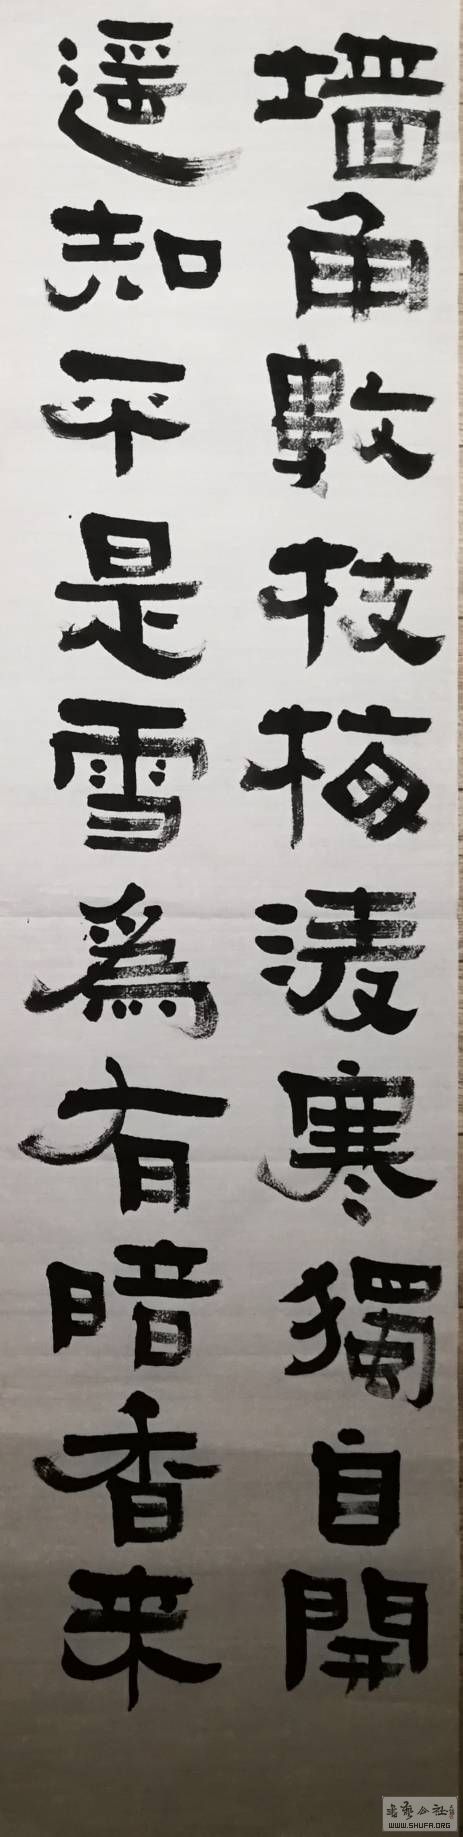 墙角數枝梅淩寒獨自開
遥知不是雪爲有暗香来
书艺公社
WWW.SHUFA.ORG